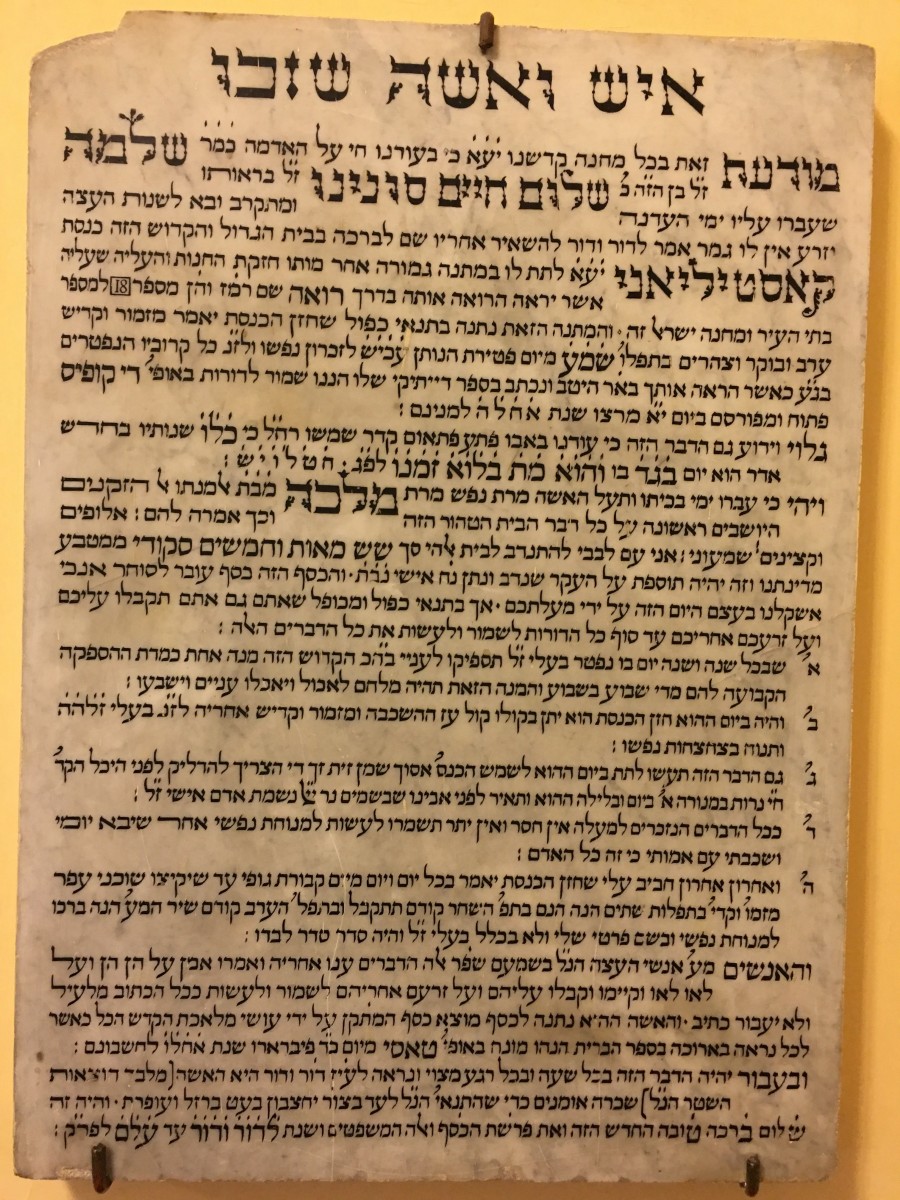 איש ואשה שזכו
מודעת זאת בכל מחנה קדשנו יע״א כי בעודנו חי על האדמה כמר שלמה
ז״ל בן הזה כ׳ שלום חיים סונינו ז״ל בראותו
שעברו עליו ימי העדנה ומתקרב ובא לשנות העצה
יזרע אין לו גמר אמר לדור ודור להשאיר אחריו שם לברכה בבית הגדול והקדוש הזה כנסת
קאסטיליאני יע״א לתת לו במתנה גמורה אחר מותו חזקת החנות והעליה שעליה
אשר יראה הרואה אותה בדרך רואה שם רמז והן מספר 18 למספר
בתי העיר ומחנה ישראל זה · והמתנה הזאת נתנה בתנאי כפול שחזן הכנסת יאמר מזמור וקדיש
ערב ובוקר וצהרים בתפלו׳ שמע מיום פטירת הנותן לזכרון נפשו ולזג׳ כל קרוביו הנפטרים
כאשר הראה אותך באר היטב ונכתב בספר דייתיקי שלו הננו שמור לדורות באופי׳ די קופיס
פתוח ומפורסם ביום י״א מרצו שנת אחלה למנינם :
גלוי וידוע גם הדבר הזה כי עודנו באבו פתע פתאום קדר שמשו רחל כי כלו שנותיו בחדש
אדר הוא יום בגד בו והוא מת בלוא זמנו לפג׳
ויהי כי עברו ימי בכיתו ותעל האשה מרת נפש מרת מלכה מבת למנתו אל הזקנים
היושבים ראשונה על כל דבר הבית הטהור הזה וכך אמרה להם : אלופים
וקצינים שמעוני : אני עם לבבי להתנדב לבית אלהי סך שש מאות וחמשים סקודי ממטבע
מדינתנו וזה יהיה תוספת על העקר שנדב ונתן נח אישי · והכסף הזה כסף עובר לסוחר אנכי
אשקלנו בעצם היום הזה על ידי מעלתכם · אך בתנאי כפול ומכופל שאתם גם אתם תקבלו עליכם
ועל זרעכם אחריכם עד סוף כל הדורות לשמור ולעשות את כל הדברים האלה :
א׳ שבכל שנה ושנה יום בו נפטר בעלי ז״ל תספיקו לעניי בהכ׳ הקדוש הזה מנה אחת כמדת ההספקה
הקבועה להם מדי שבוע בשבוע והמנה הזאת תהיה מלחם לאכול ויאכלו עניים וישבעו :
ב׳ והיה ביום ההוא חזן הכנסת הוא יתן בקולו קול עז ההשכבה ומזמור וקדיש אחריה לזנ׳ בעלי זלהה
ותנוח בצחצחות נפשו :
ג׳ גם הדבר הזה תעשו לתת ביום ההוא לשמש הכנס׳ אסוך שמן זית זך די הצריך להדליק לפני היכל הקד׳
ח״י נרות במנורה א׳ ביום ובלילה ההוא ותאיר לפני אבינו שבשמים נר של נשמת אדם אישי ז״ל :
ד׳ ככל הדברים הנזכרים למעלה אין חסר ואין יתר תשמרו לעשות למנוחת נפשי אחר שיבא יומי
ושכבתי עם אמותי כי זה כל האדם :
ה׳ ואחרון אחרון חביב עלי שחזן הכנסת יאמר בכל יום ויום מיום קבורת גופי עד שיקיצו שוכני עפר
מזמו׳ וקדי׳ בתפלות שתים הנה הנם בתפ׳ השחר קודם תתקבל ובתפל׳ הערב קודם שיר המע׳ הנה ברכו
למנוחת נפשי ובשם פרטי שלי ולא בכלל בעלי ז״ל והיה סדר סדר לבדו :
והאנשים מע׳ אנשי העצה הנ״ל בשמעם שפר אלה הדברים ענו אחריה ואמרו אמן על הן הן ועל
לאו לאו וקיימו וקבלו עליהם ועל זרעם אחריהם לשמור ולעשות ככל הכתוב מלעיל
ולא יעבור כתיב · והאשה ההיא נתנה לכסף מוצא כסף המתקן על ידי עושי מלאכת הקדש הכל כאשר
לכל נראה בארוכה בספר הברית הנהו מונח באופי׳ טאסי מיום כד פיברארו שנת אחלו לחשבונם :
ובעבור יהיה הדבר הזה בכל שעה ובכל רגע מצוי ונראה לעיני דור ודור היא האשה [מלבד הוצאות
השטר הנ״ל] שכרה אומנים כדי שהתנאי׳ הנ״ל לעד בצור יחצבון בעט ברזל ועופרת · והיה זה
שלום ברכה טובה החדש הזה ואת פרשת הכסף ואלה המשפטים ושנת לדור ודור עד עלם לפרק :